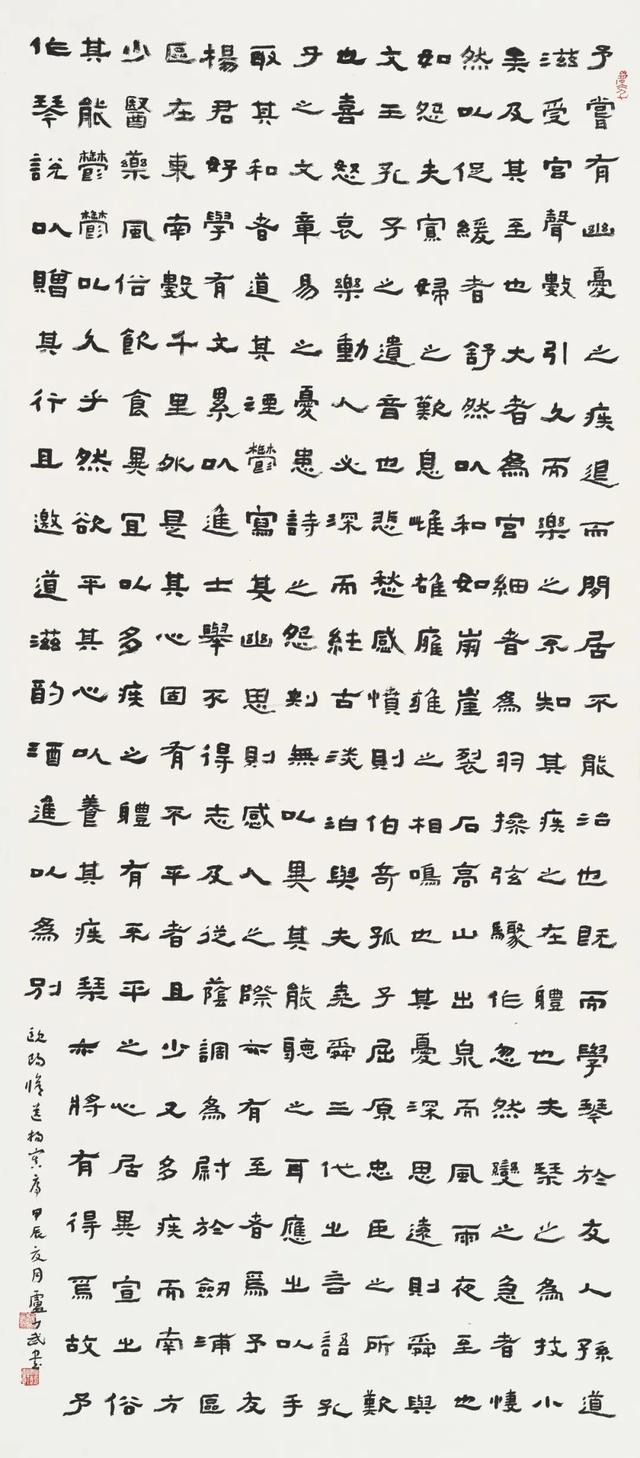 予嘗有幽憂之疾退而閒居不能治也既而學琴於友人孫道
滋受宮聲數引久而樂之不知其疾之在體也夫琴之為技小
矣及其至也大者為宮細者為羽操弦驟作忽然變之急者悽
然以促緩者舒然以和如崩崖裂石高山出泉而風雨夜至也
如怨夫寡婦之歎息雌雄廱雝之相鳴也其憂深思遠則舜與
文王孔子之遺音也悲愁感憤則伯奇孤子屈原忠臣之所歎
也喜怒哀樂動人必深而純古淡泊與夫堯舜三代之言語孔
子之文章易之憂患詩之怨刺無以異其能聽之耳應之以手
取其和者道其湮鬱寫其幽思則感人之際亦有至者焉予友
楊君好學有文累以進士舉不得志及從蔭調為尉於劒浦區
區在東南數千里外是其心固有不平者且少又多疾而南方
少醫藥風俗飲食異宜以多疾之體有不平之心居異宜之俗
其能鬱鬱以久乎然欲平其心以養其疾琴亦將有得焉故予
作琴說以贈其行且邀道滋酌酒進以為別
歐陽脩送楊寘序甲辰夏月盧武書